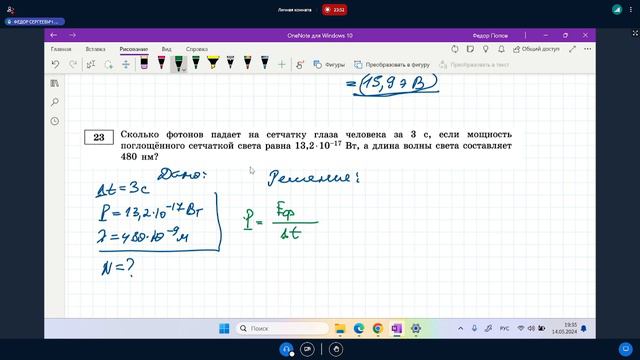 Личная комната
23:52
ФЕДОР СЕРГЕЕВИЧ
OneNote для Windows 10
Федор Попов
Главная Вставка Рисование Просмотр Справка
Общий доступ
Фигуры Преобразовать в фигуру Преобразовать в текст
= (15,9 эВ)
23 Сколько фотонов падает на сетчатку глаза человека за 3 с, если мощность
поглощённого сетчаткой света равна 13,2·10⁻¹⁷ Вт, а длина волны света составляет
480 нм?
Дано: Решение:
Δt = 3с
P = 13,2·10⁻¹⁷ Вт
λ = 480·10⁻⁹ м
N = ?
P = Eф
Δt
Поиск
РУС
19:35
14.05.2024